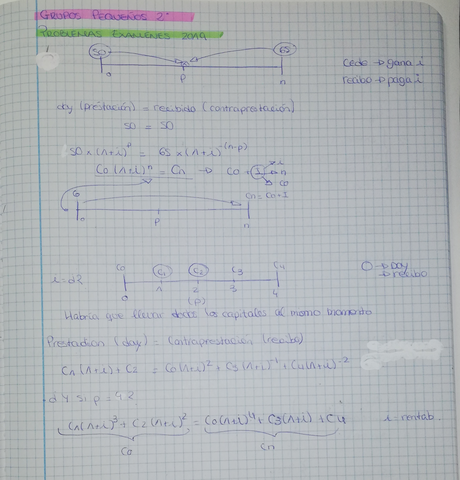 GRUPOS PEQUEÑOS 2º
PROBLEMAS EXAMENES 2019
50 65
0 P n
Cedo → gana i
recibo → paga i
doy (prestación) = recibido (contraprestación)
50 = 50
50 x (1+i)^p = 65 x (1+i)^-(n-p)
Co (1+i)^n = Cn → Co + I
i
n
Co
Cn = Co + I
0 P n
i = d?
Co C1 C2 C3 C4
0 1 2 3 4
(P)
○ → Doy
→ recibo
Habria que llevar los capitales al mismo momento
Prestación (doy) = contraprestación (recibo)
C1 (1+i) + C2 = Co (1+i)^2 + C3 (1+i)^-1 + C4 (1+i)^-2
C1 (1+i)^3 + C2 (1+i)^2 = Co (1+i)^4 + C3 (1+i) + C4
i = rentab.
Ca Cn